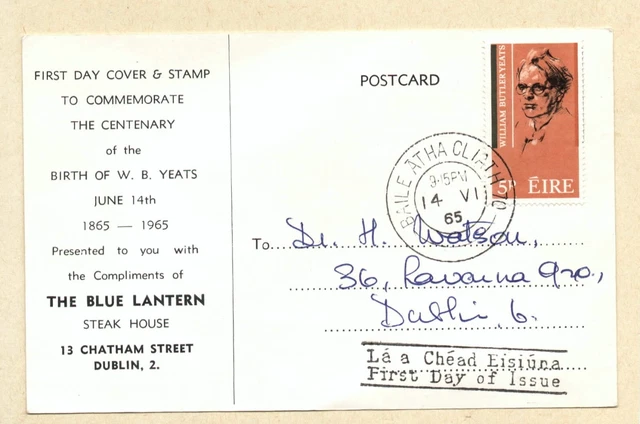 FIRST DAY COVER & STAMP
TO COMMEMORATE
THE CENTENARY
of the
BIRTH OF W. B. YEATS
JUNE 14th
1865 — 1965
Presented to you with
the Compliments of
THE BLUE LANTERN
STEAK HOUSE
13 CHATHAM STREET
DUBLIN, 2.
POSTCARD
WILLIAM BUTLER YEATS
5P ÉIRE
BAILE ÁTHA CLIATH 70
9-15PM
14 VI
65
To Dr. H. Watson,
36, Ravarna Gro.,
Dublin 6.
Lá a Chéad Eisiúna
First Day of Issue